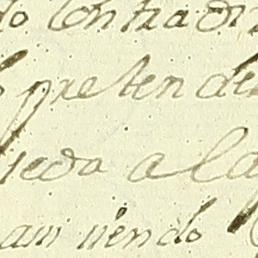 lo contradi
pretende
ueda a la
am niendo